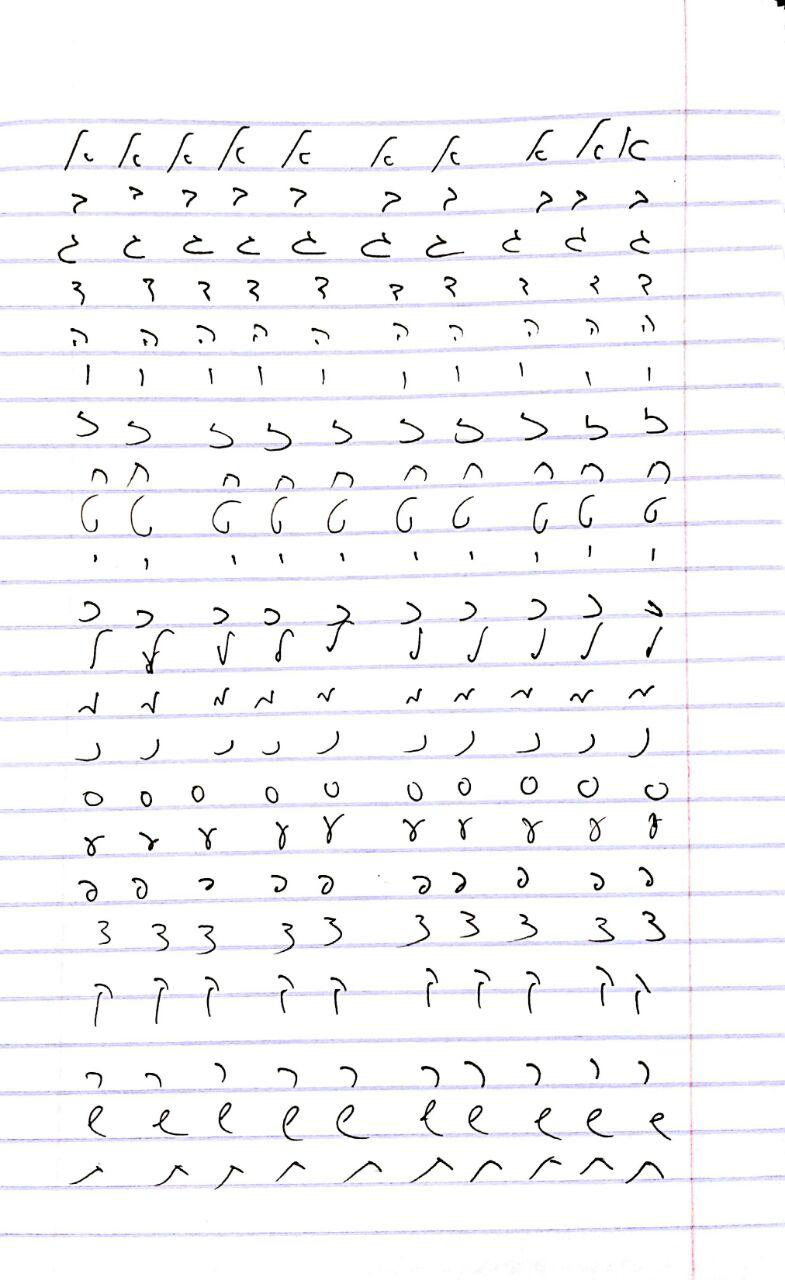 א א א א א א א א א א
ב ב ב ב ב ב ב ב ב ב
ג ג ג ג ג ג ג ג ג ג
ד ד ד ד ד ד ד ד ד ד
ה ה ה ה ה ה ה ה ה ה
ו ו ו ו ו ו ו ו ו ו
ז ז ז ז ז ז ז ז ז ז
ח ח ח ח ח ח ח ח ח ח
ט ט ט ט ט ט ט ט ט ט
י י י י י י י י י י
כ כ כ כ כ כ כ כ כ כ
ל ל ל ל ל ל ל ל ל ל
מ מ מ מ מ מ מ מ מ מ
נ נ נ נ נ נ נ נ נ נ
ס ס ס ס ס ס ס ס ס ס
ע ע ע ע ע ע ע ע ע ע
פ פ פ פ פ פ פ פ פ פ
צ צ צ צ צ צ צ צ צ צ
ק ק ק ק ק ק ק ק ק ק
ר ר ר ר ר ר ר ר ר ר
ש ש ש ש ש ש ש ש ש ש
ת ת ת ת ת ת ת ת ת ת